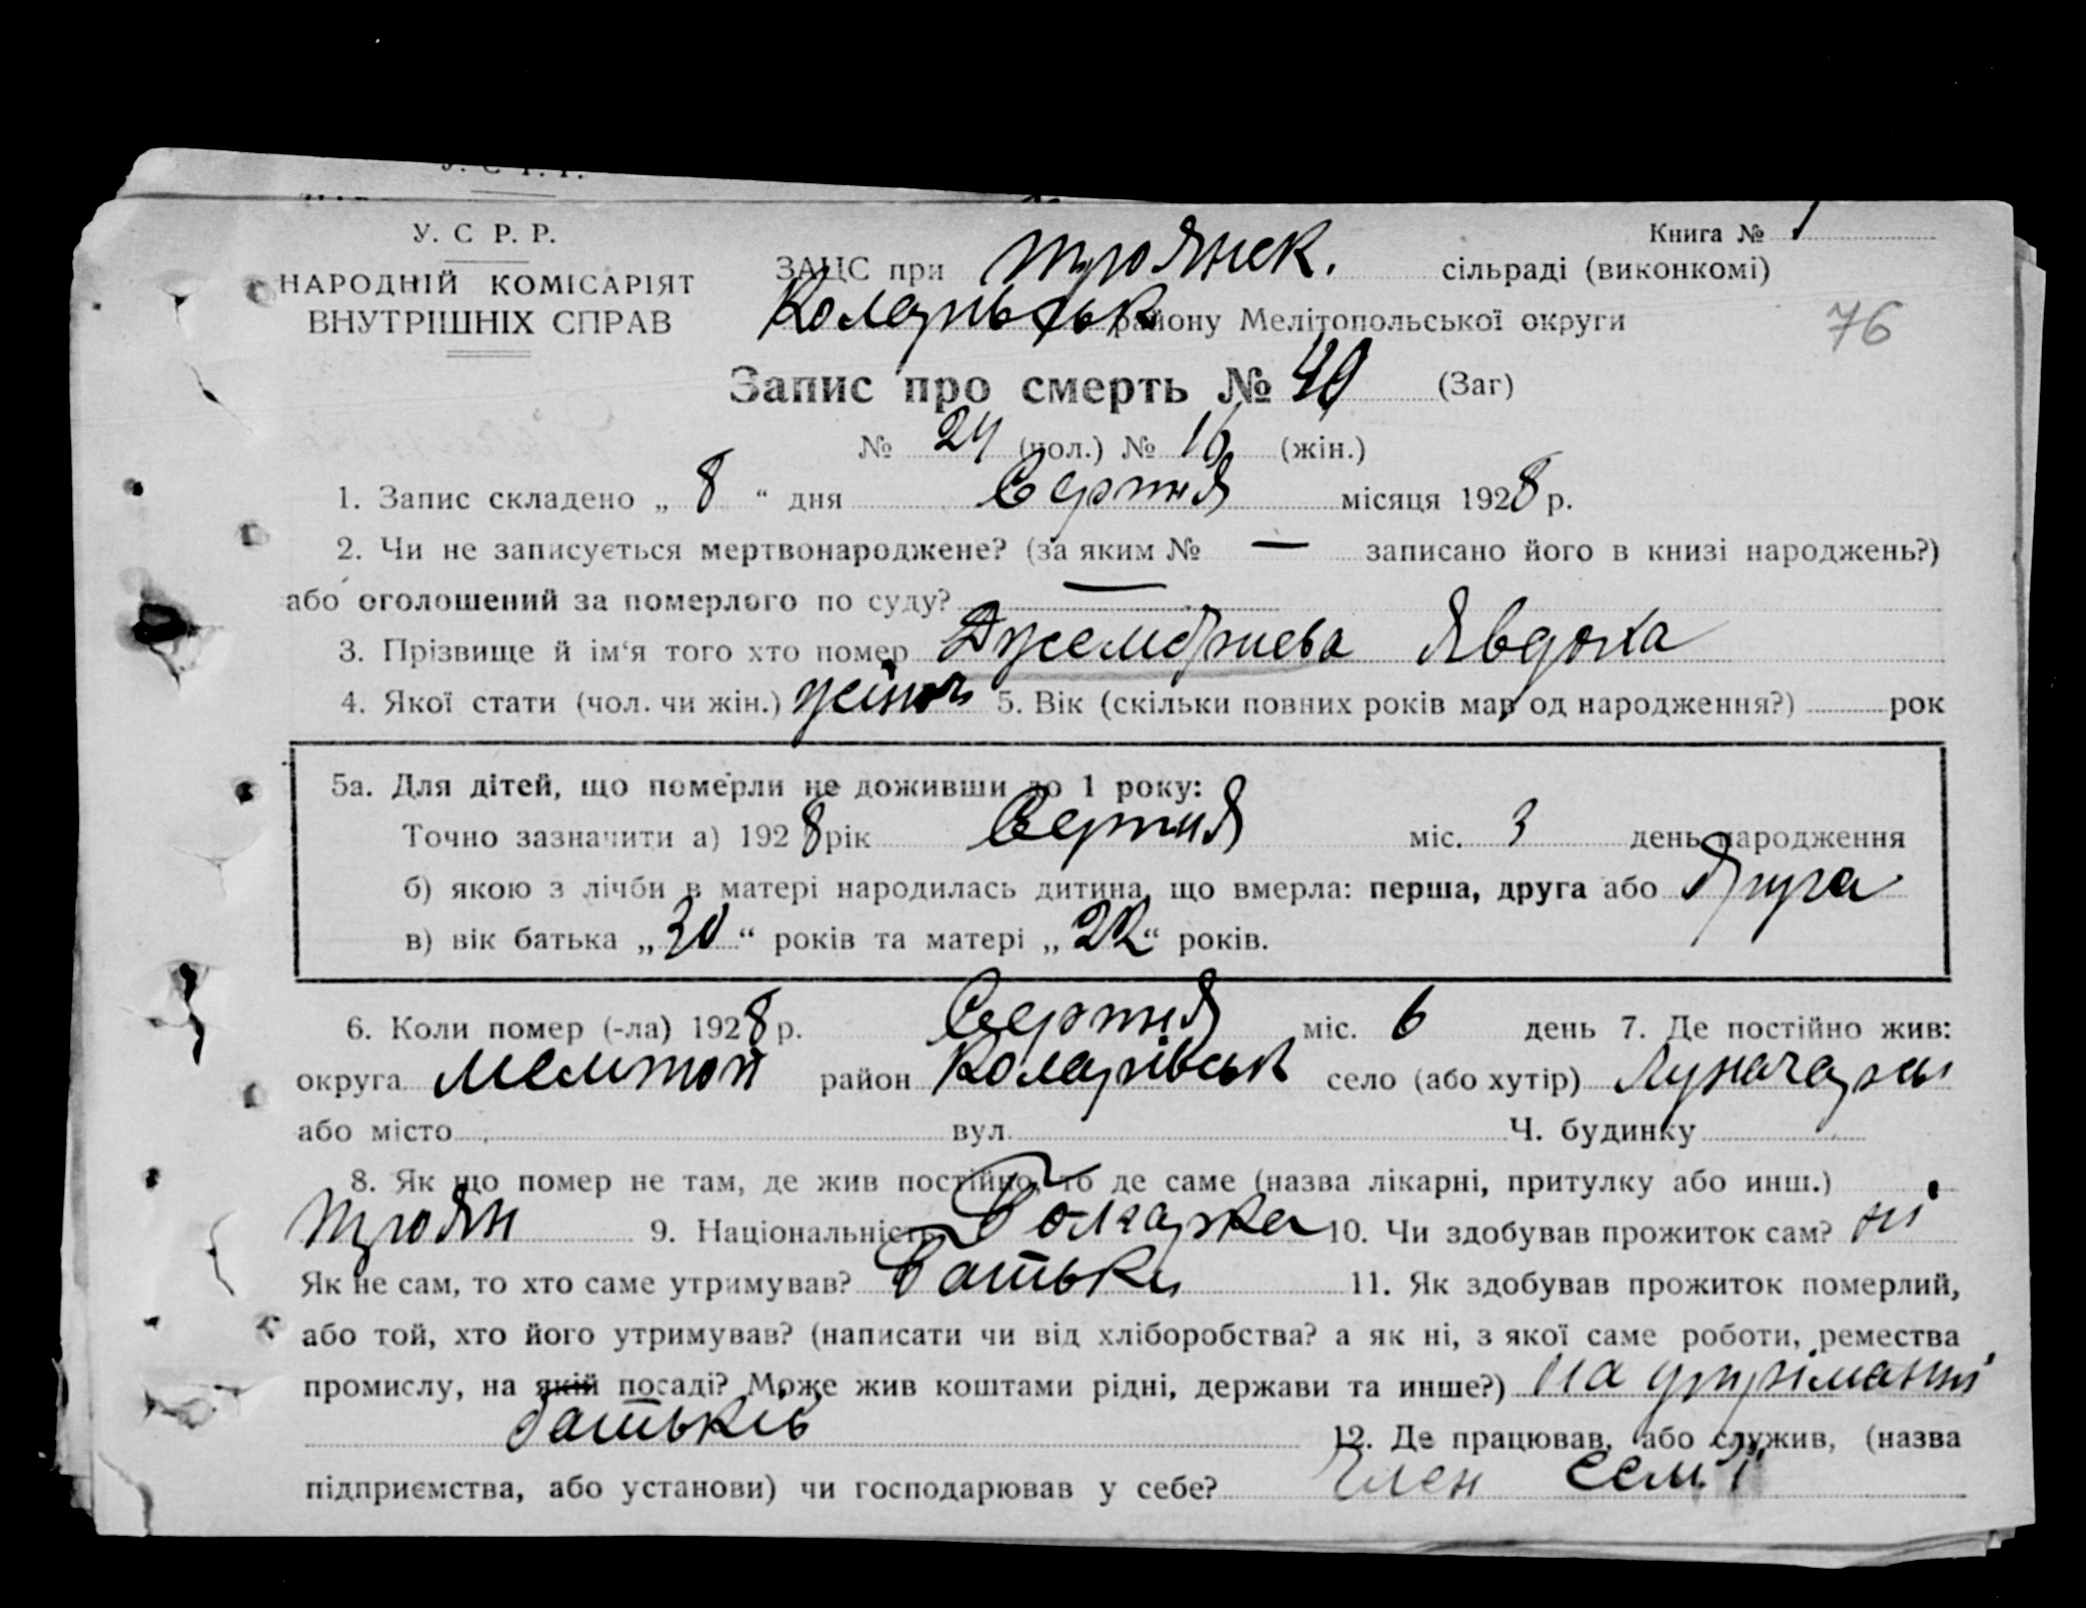 У. С Р. Р.
НАРОДНІЙ КОМІСАРІЯТ
ВНУТРІШНІХ СПРАВ
Книга № 1
ЗАЦС при Троянск. сільраді (виконкомі)
Коларывськ району Мелітопольської округи
76
Запис про смерть № 40 (Заг)
№ 24 (чол.) № 16 (жін.)
1. Запис складено „ 8 “ дня Серпня місяця 1928 р.
2. Чи не записується мертвонароджене? (за яким № — записано його в книзі народжень?)
або оголошений за померлого по суду? —
3. Прізвище й ім'я того хто помер Джембриева Явдоха
4. Якої стати (чол. чи жін.) жіноч 5. Вік (скільки повних років мав од народження?) рок
5а. Для дітей, що померли не доживши до 1 року:
Точно зазначити а) 1928 рік Серпня міс. 3 день народження
б) якою з лічби в матері народилась дитина, що вмерла: перша, друга або друга
в) вік батька „ 30 “ років та матері „ 22 “ років.
6. Коли помер (-ла) 1928 р. Серпня міс. 6 день 7. Де постійно жив:
округа Мелітоп район Коларівськ село (або хутір)
або місто вул. Ч. будинку
8. Як що помер не там, де жив постійно, то де саме (назва лікарні, притулку або инш.)
Троян 9. Національність Болгарка 10. Чи здобував прожиток сам? ні
Як не сам, то хто саме утримував? Батьки 11. Як здобував прожиток померлий,
або той, хто його утримував? (написати чи від хліборобства? а як ні, з якої саме роботи, ремества
промислу, на якій посаді? Може жив коштами рідні, держави та инше?) на утріманні
батьків 12. Де працював, або служив, (назва
підприємства, або установи) чи господарював у себе? Член семї